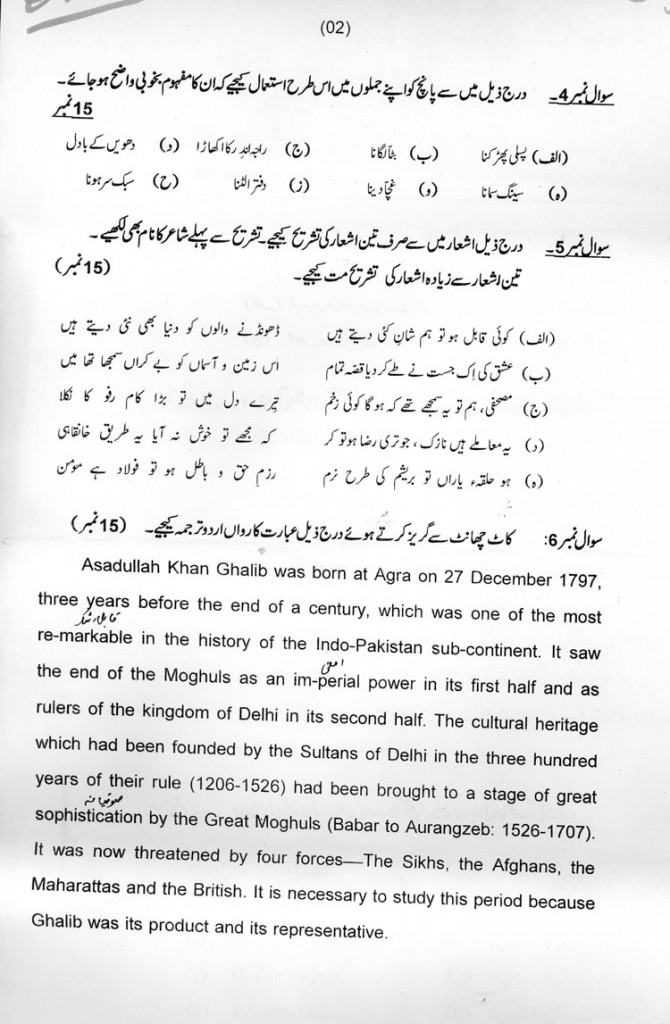 (02)
سوال نمبر 4۔ درج ذیل میں سے پانچ کو اپنے جملوں میں اس طرح استعمال کیجیے کہ ان کا مفہوم بخوبی واضح ہو جائے۔
15 نمبر
(الف) پسلی پھڑکنا (ب) بٹا لگانا (ج) راجہ اندر کا اکھاڑا (د) دھویں کے بادل
(ہ) سینگ سمانا (و) غچا دینا (ز) دفتر الٹنا (ح) سبک سر ہونا
سوال نمبر 5۔ درج ذیل اشعار میں سے صرف تین اشعار کی تشریح کیجیے۔ تشریح سے پہلے شاعر کا نام بھی لکھیے۔
تین اشعار سے زیادہ اشعار کی تشریح مت کیجیے۔ (15 نمبر)
(الف) کوئی قابل ہو تو ہم شانِ کئی دیتے ہیں ڈھونڈنے والوں کو دنیا بھی نئی دیتے ہیں
(ب) عشق کی اِک جست نے طے کر دیا قصہ تمام اس زمین و آسماں کو بے کراں سمجھا تھا میں
(ج) مصحفی، ہم تو یہ سمجھے تھے کہ ہو گا کوئی زخم تیرے دل میں تو بڑا کام رفو کا نکلا
(د) یہ معاملے ہیں نازک، جو تری رضا ہو تو کر کہ مجھے تو خوش نہ آیا یہ طریق خانقاہی
(ہ) ہو حلقہء یاراں تو بریشم کی طرح نرم رزمِ حق و باطل ہو تو فولاد ہے مومن
سوال نمبر 6: کاٹ چھانٹ سے گریز کرتے ہوئے درج ذیل عبارت کا رواں اردو ترجمہ کیجیے۔ (15 نمبر)
Asadullah Khan Ghalib was born at Agra on 27 December 1797,
three years before the end of a century, which was one of the most
re-markable in the history of the Indo-Pakistan sub-continent. It saw
the end of the Moghuls as an im-perial power in its first half and as
rulers of the kingdom of Delhi in its second half. The cultural heritage
which had been founded by the Sultans of Delhi in the three hundred
years of their rule (1206-1526) had been brought to a stage of great
sophistication by the Great Moghuls (Babar to Aurangzeb: 1526-1707).
It was now threatened by four forces—The Sikhs, the Afghans, the
Maharattas and the British. It is necessary to study this period because
Ghalib was its product and its representative.